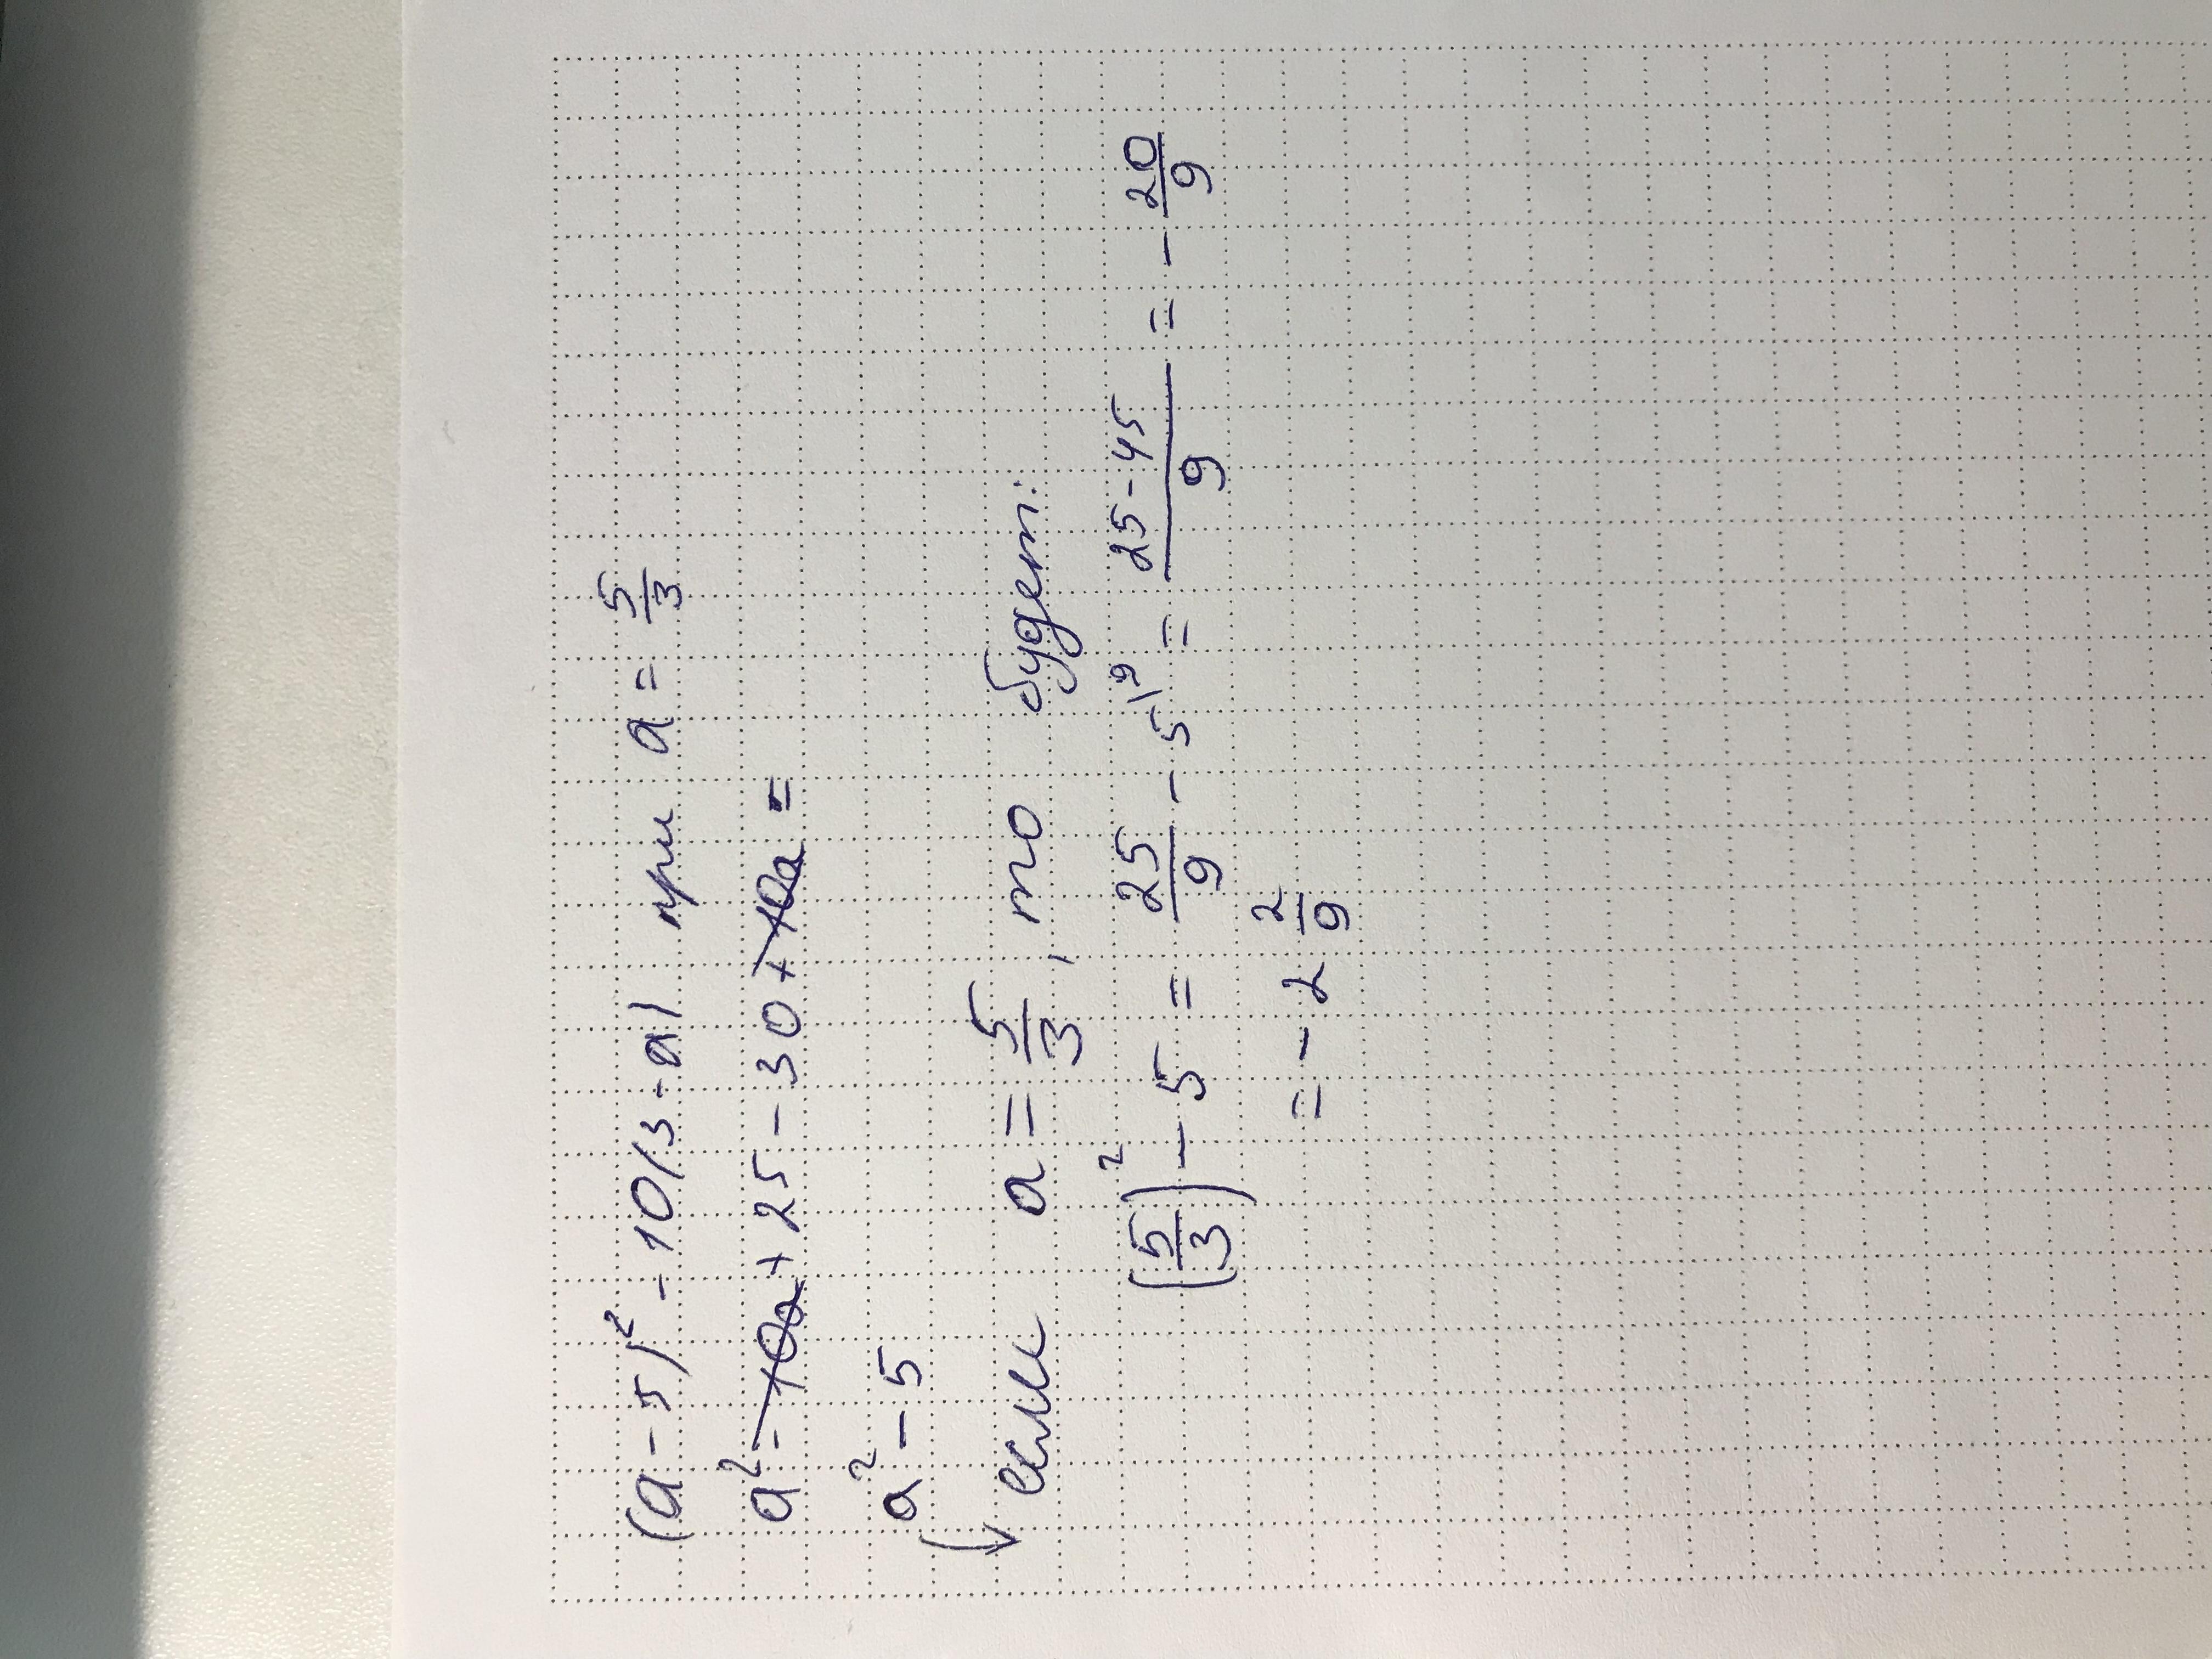 (a-5)² - 10(3-a) при a = 5/3
a² - 10a + 25 - 30 + 10a =
a² - 5
если a = 5/3, то будет:
(5/3)² - 5 = 25/9 - 5\9 = (25-45)/9 = - 20/9
= - 2 2/9